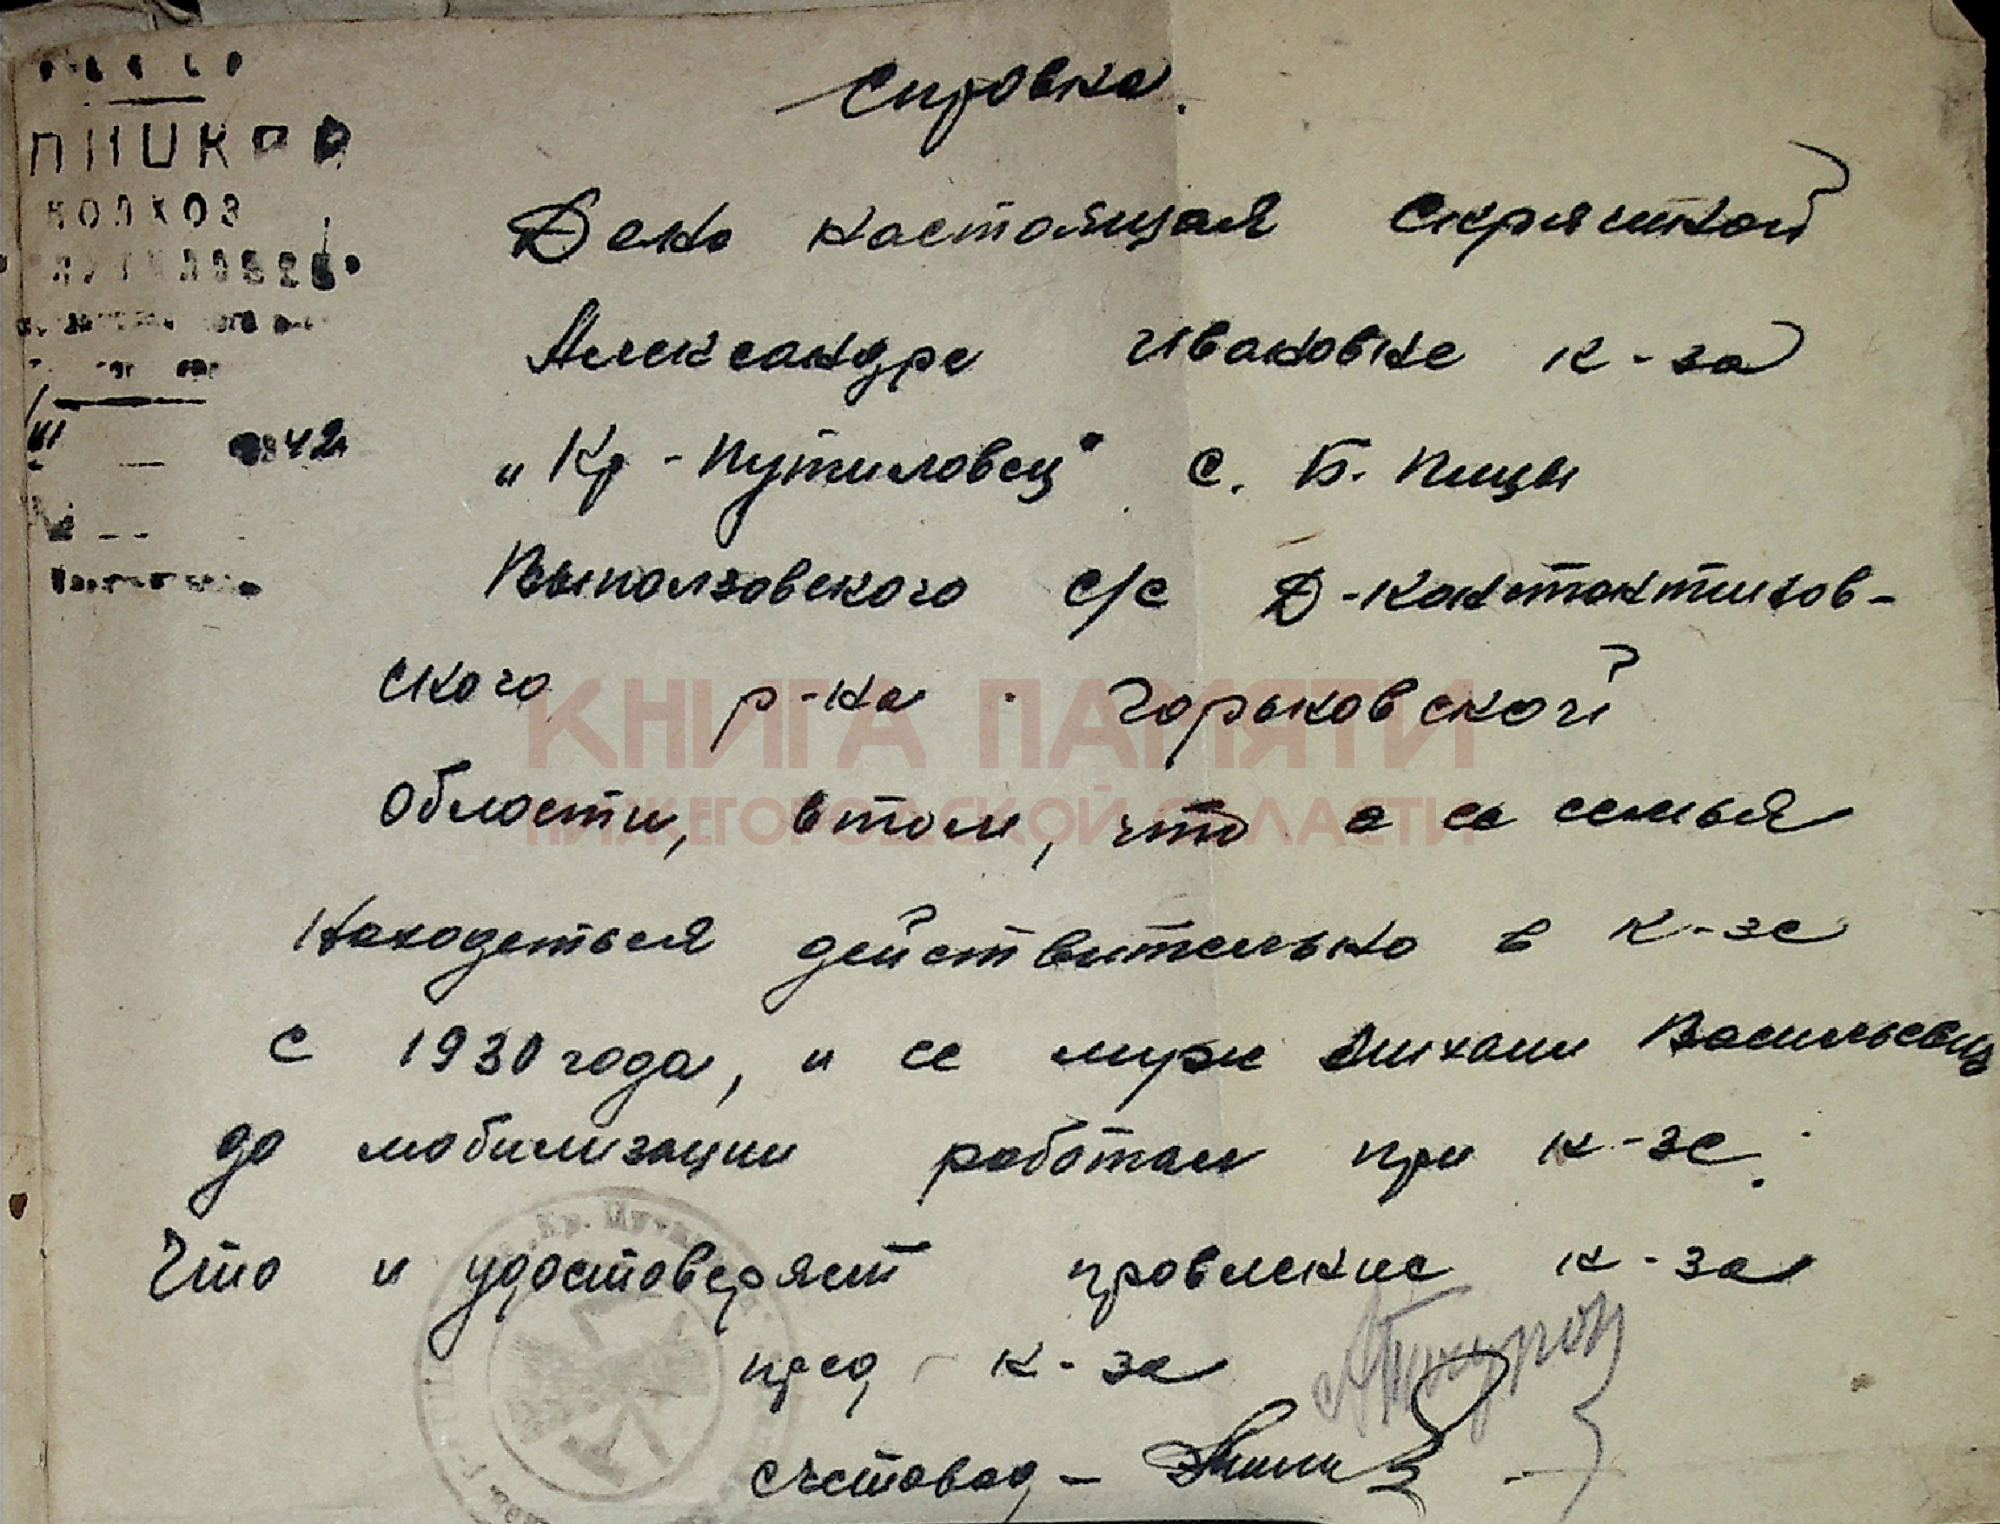 Справка.
Дана настоящая
Александре Ивановне к-за
„Кр-Путиловец" с. Б. Пицы
Выползовского с/с Д-Константинов-
ского р-на Горьковской
области, в том, что а ее семья
находеться действительно в к-зе
с 1930 года, и ее муж Михаил Васильевич
до мобилизации работал при к-зе.
Что и удостоверяет правление к-за
пред к-за
счетовод -
КОЛХОЗ
42
„Кр. Пути
КНИГА ПАМЯТИ
НИЖЕГОРОДСКОЙ ОБЛАСТИ